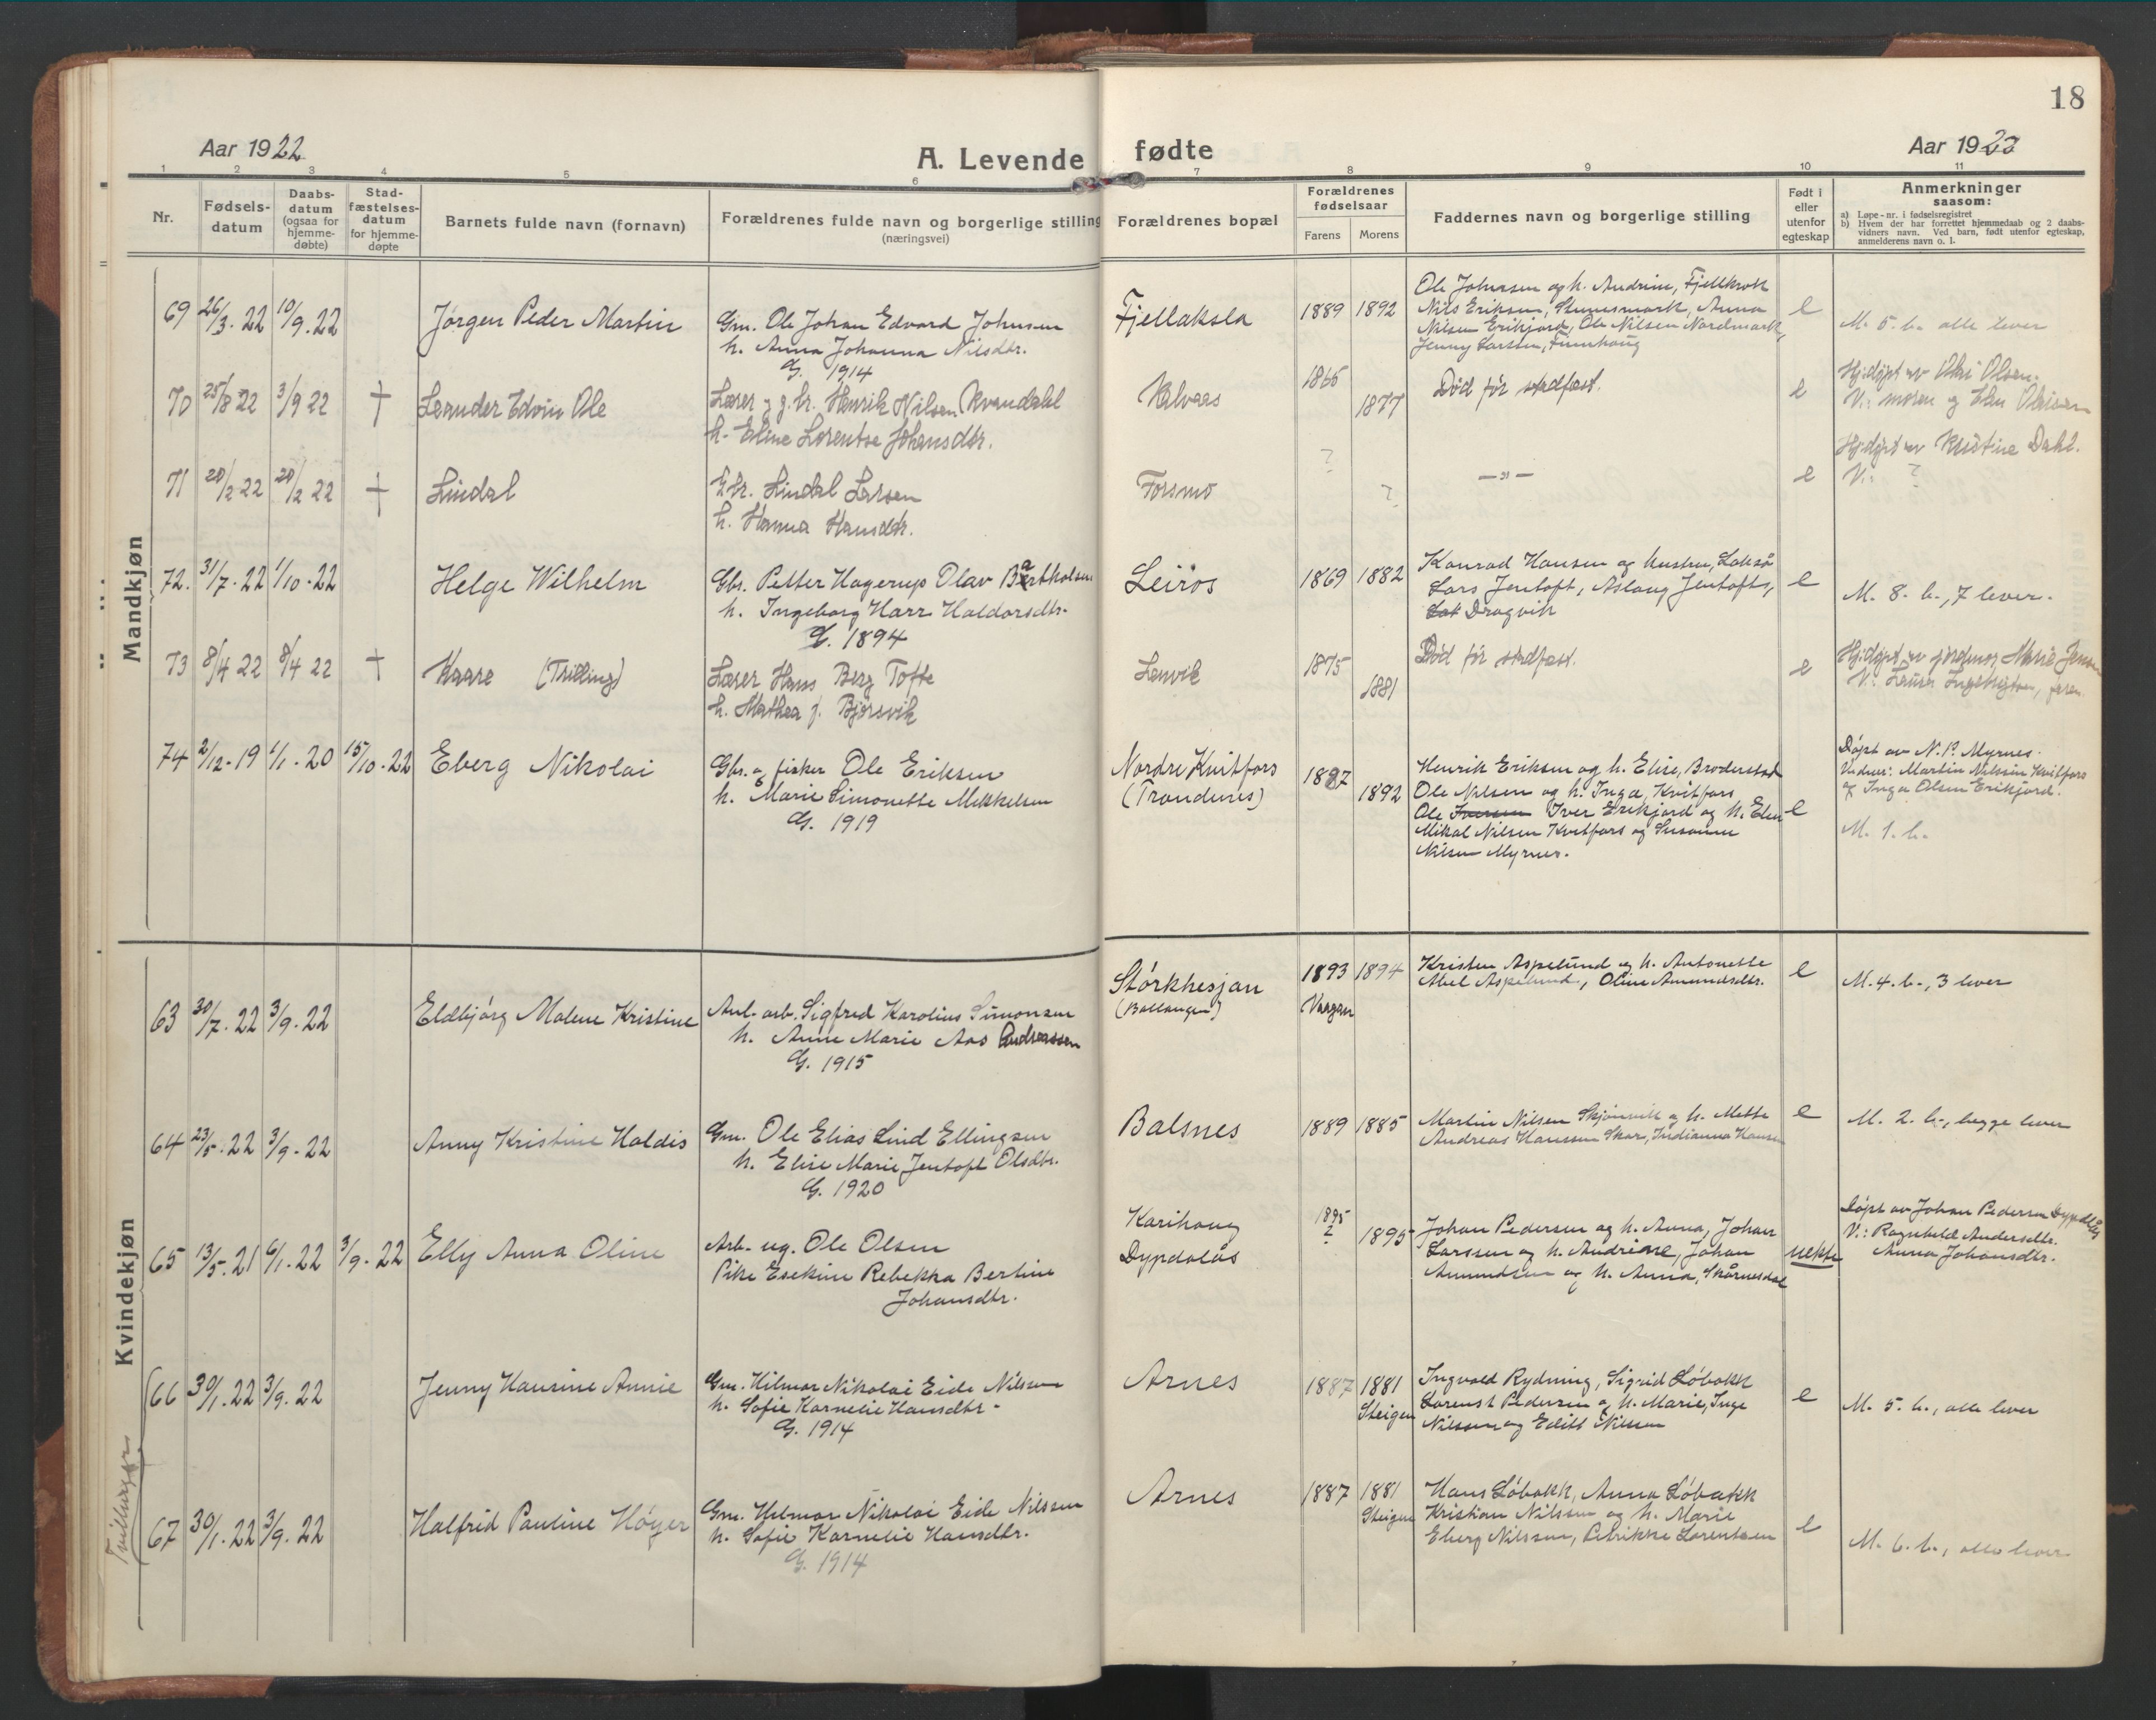 18
Aar 1922
A. Levende fødte
Aar 1922
1 2 3 4 5 6 7 8 9 10 11
Nr.
Fødsels-
datum
Daabs-
datum
(ogsaa for
hjemme-
døbte)
Stad-
fæstelses-
datum
for hjemme-
døpte
Barnets fulde navn (fornavn)
Forældrenes fulde navn og borgerlige stilling
(næringsvei)
Forældrenes bopæl
Forældrenes
fødselsaar
Farens Morens
Faddernes navn og borgerlige stilling
Født i
eller
utenfor
egteskap
Anmerkninger
saasom:
a) Løpe-nr. i fødselsregistret
b) Hvem der har forrettet hjemmedaab og 2 daabs-
vidners navn. Ved barn, født utenfor egteskap,
anmelderens navn o. l.
Mandkjøn
69 26/3. 22 10/9. 22 Jørgen Peder Martin
Gm. Ole Johan Edvard Johnsen
h. Anna Johanna Nilsdtr.
G. 1914
Fjellaksla 1889 1892
Ole Johnsen og h. Andrine, Fjellkrok
Nils Eriksen, Anna
Nilsen Erikjord, Ole Nilsen Nordmark,
Jenny Larsen, Finnhaug
e
M. 5. b. alle lever
70 25/8 22 3/9 22 † Leander Edvin Ole
Læser og g.br. Henrik Nilsen Kvandahl
h. Eline Lorentse Johansdtr.
1866 1877
Død før stadfæst.
e
Hj.døpt av Olsen.
V.: moren og
71 20/2 22 20/2 22 † Lindal
G.br. Lindal Larsen
h. Hanna Hansdtr.
Forsmo ? ?
— " —
e
Hj.døpt av Kristine Dahl.
V.: ?
72. 31/7. 22 1/10. 22 Helge Wilhelm
Gbr. Petter Hagerup Olav Bartholsen
h. Ingeborg Harr Haldorsdtr.
G. 1894
Leirøs 1869 1882
Konrad Hansen og hustru, Lakså
Lars Jentoft, Aslaug Jentofts,
Dragvik
e
M. 8. b., 7 lever.
73 8/4 22 8/4 22 † Kaare (Trilling)
Læser Hans Berg Tofte
h. Mathea f. Bjørsvik
Lenvik 1875 1881
Død før stadfæst.
e
Hj.døpt av jordmor Marie Jensen
V.: Laura Ingebrigtsen, faren
74 2/12. 19 1/1. 20 15/10. 22 Eberg Nikolai
Gbr. og fisker Ole Eriksen
h. Marie Simonette Mikkelsen
G. 1919
Nordre Kvitfors
(Trondenes)
1887 1892
Henrik Eriksen og h. Elise, Broderstad
Ole Nilsen og h. Inga, Kvitfors
Ole Iversen Iver Erikjord og h. Elen
Mikal Nilsen Kvitfors og Susanne
Nilsen Myrnes.
e
Døpt av N. P. Myrnes.
Vidner: Martin Nilssen Kvitfors
og Inga Olsen Erikjord.
M. 1. b.
Kvindekjøn
63 30/7. 22 3/9. 22 Eldbjørg Malene Kristine
Anl. arb. Sigfred Karolius Simonsen
h. Anne Marie Aas Andreassen
G. 1915
Størkhesjan
(Ballangen)
1893 1894
Vaagan
Kristen Aspelund og h. Antonette
Abel Aspelund, Oline Amundsdtr.
e
M. 4. b., 3 lever
64 23/5. 22 3/9. 22 Anny Kristine Haldis
Gm. Ole Elias Lind Ellingsen
h. Elise Marie Jentoft Olsdtr.
G. 1920
Balsnes 1889 1885
Martin Nilsen Skjønvik og h. Mette
Andreas Hanssen Skar, Indianna Hansen
e
M. 2. b., begge lever
65 13/5. 21 6/1. 22 3/9. 22 Elly Anna Oline
Arb. ug. Ole Olsen
Pike Esekine Rebekka Bertine
Johansdtr.
Karihaug
Dypdalås
1895
?
1895
Johan Pedersen og h. Anna, Johan
Larssen og h. Andrine, Johan
Amundsen og h. Anna, Skårnesdal
uekte
Døpt av Johan Pedersen Dypdalås
V.: Ragnhild Andersdtr.
Anna Johansdtr.
Tvillinger
66 30/1. 22 3/9. 22 Jenny Haurine Annie
Gm. Hilmar Nikolai Eide Nilssen
h. Sofie Kornelie Hansdtr.
G. 1914
Arnes 1887 1881
Steigen
Ingvald Rydning, Sigrid Løbakk
Lorents Pedersen og h. Marie, Inge
Nilssen og Edith Nilssen
e
M. 5. b., alle lever
67 30/1. 22 3/9. 22 Halfrid Pauline Høyer
Gm. Hilmar Nikolai Eide Nilssen
h. Sofie Kornelie Hansdtr.
G. 1914
Arnes 1887 1881
Steigen
Hans Løbakk, Anna Løbakk
Kristian Nilssen og h. Marie
Eberg Nilssen, Petrikke Lorentsen
e
M. 6. b., alle lever